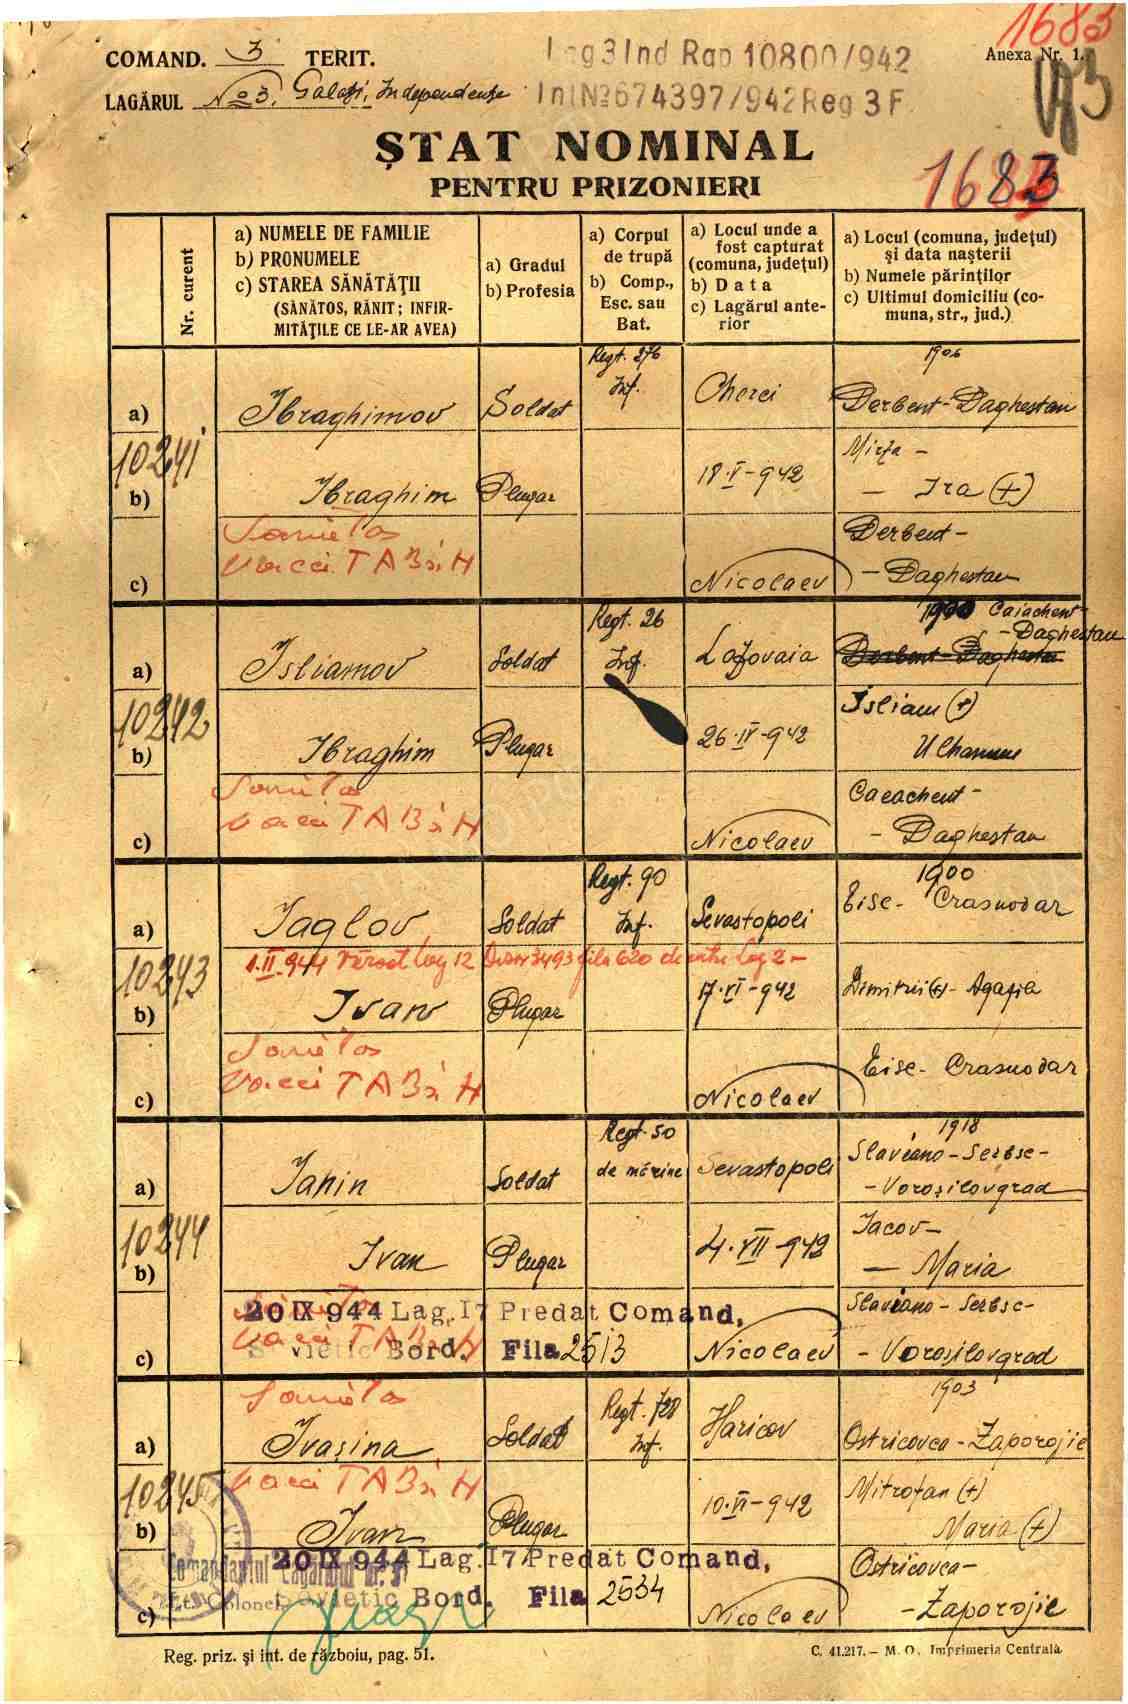 1683
COMAND. 3 TERIT.
Lag 3 Ind Rap 10800/942
Anexa Nr. 1.
LAGĂRUL No 3. Galați, Independența
Int № 674397/942 Reg 3 F
ȘTAT NOMINAL
PENTRU PRIZONIERI
1683
Nr. curent
a) NUMELE DE FAMILIE
b) PRONUMELE
c) STAREA SĂNĂTĂȚII
(SĂNĂTOS, RĂNIT; INFIR-
MITĂȚILE CE LE-AR AVEA)
a) Gradul
b) Profesia
a) Corpul
de trupă
b) Comp.,
Esc. sau
Bat.
a) Locul unde a
fost capturat
(comuna, județul)
b) Data
c) Lagărul ante-
rior
a) Locul (comuna, județul)
și data nașterii
b) Numele părinților
c) Ultimul domiciliu (co-
muna, str., jud.)
Regt. 276
1906
a) Ibraghimov Soldat Inf. Cherci Derbent-Daghestan
10241
Mirza -
b) Ibraghim Plugar 18·V-942 - Ira (+)
Sanătos
Derbent-
Vacci TAB și H
c) Nicolaev - Daghestan
Regt. 26
1900 Caiachent-
- Daghestan
a) Isliamov Soldat Inf. Lozovaia Derbent-Daghestan
10242
Isliam (+)
b) Ibraghim Plugar 26·IV-942
Sanătos
Caeachent-
Vacci TAB și H
c) Nicolaev - Daghestan
Regt. 90
1900
a) Iaglov Soldat Inf. Sevastopoli Eisc- Crasnodar
1.II.944 Vărsat Lag 12 Dosar 3493 fila 620 dentre Lag 2-
10243
b) Ivan Plugar 17·VI-942 Dimitrii (+)- Agafia
Sanătos
Vacci TAB și H
Eisc- Crasnodar
c) Nicolaev
Regt. 50
1918
de marine
Slaviano-Serbsc-
a) Ianin Soldat Sevastopoli - Voroșilovgrad
10244
Iacov-
b) Ivan Plugar 4·VII-942 - Maria
Sanătos
20 IX 944 Lag. 17 Predat Comand,
Slaviano- Serbsc-
Vacci TAB și H
Sovietic Bord. Fila 2513
c) Nicolaev - Voroșilovgrad
Sanătos
Regt. 728
1903
a) Ivașina Soldat Inf. Haricov Ostricovca-Zaporojie
10245
Vacci TAB și H
Mitrofan (+)
b) Ivan Plugar 10·VI-942 Maria (+)
20 IX 944 Lag. 17 Predat Comand,
Ostricovca-
Comandantul Lagărului Nr. 3
Sovietic Bord. Fila 2534
Lt. Colonel,
c) Nicolaev - Zaporojie
Reg. priz. și int. de războiu, pag. 51.
C. 41.217.— M. O. Imprimeria Centrală